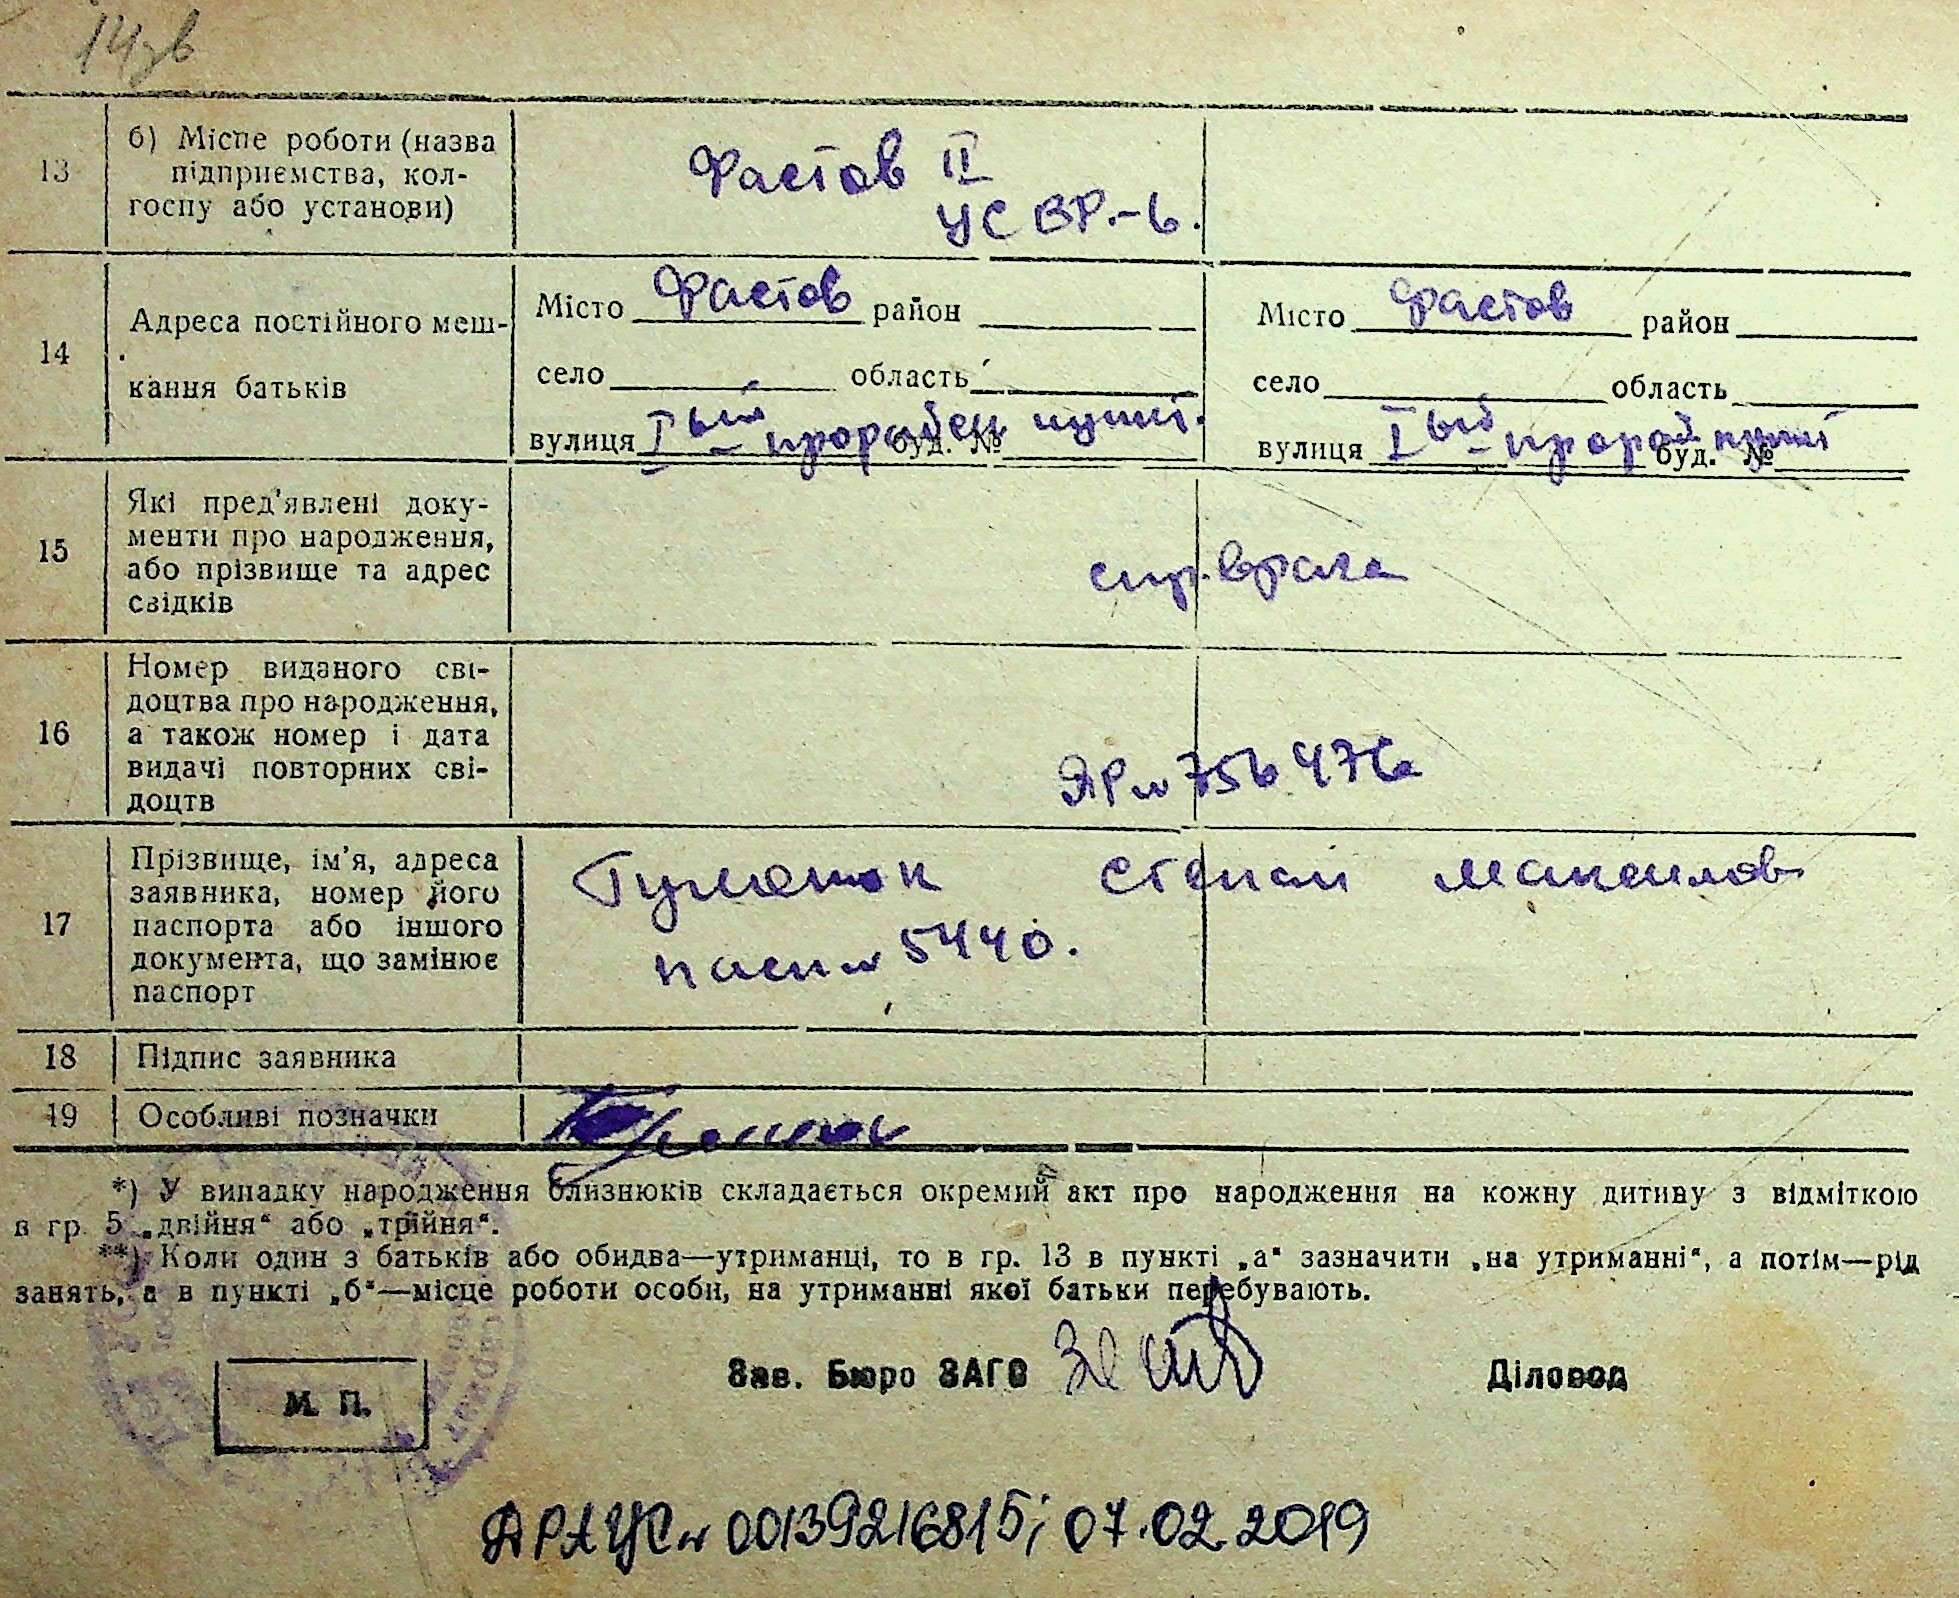 14зв
13
б) Місце роботи (назва
підприємства, кол-
госпу або установи)
Фастов II
УСВР.-6.
14
Адреса постійного меш-
кання батьків
Місто Фастов район
село область
вулиця Iый прорабск пункт. буд. №
Місто Фастов район
село область
вулиця Iый прораб пункт буд. №
15
Які пред'явлені доку-
менти про народження,
або прізвище та адрес
свідків
спр. врача
16
Номер виданого сві-
доцтва про народження,
а також номер і дата
видачі повторних сві-
доцтв
ЯР № 756476
17
Прізвище, ім'я, адреса
заявника, номер його
паспорта або іншого
документа, що замінює
паспорт
Степан Максимов
пасп № 5440.
18 Підпис заявника
19 Особливі позначки
*) У випадку народження близнюків складається окремий акт про народження на кожну дитину з відміткою
в гр. 5 „двійня“ або „трійня“.
**) Коли один з батьків або обидва—утриманці, то в гр. 13 в пункті „а“ зазначити „на утриманні“, а потім—рід
занять, а в пункті „б“—місце роботи особи, на утриманні якої батьки перебувають.
Зав. Бюро ЗАГС
Діловод
М. П.
ДРАЦС № 00139216815; 07.02.2019